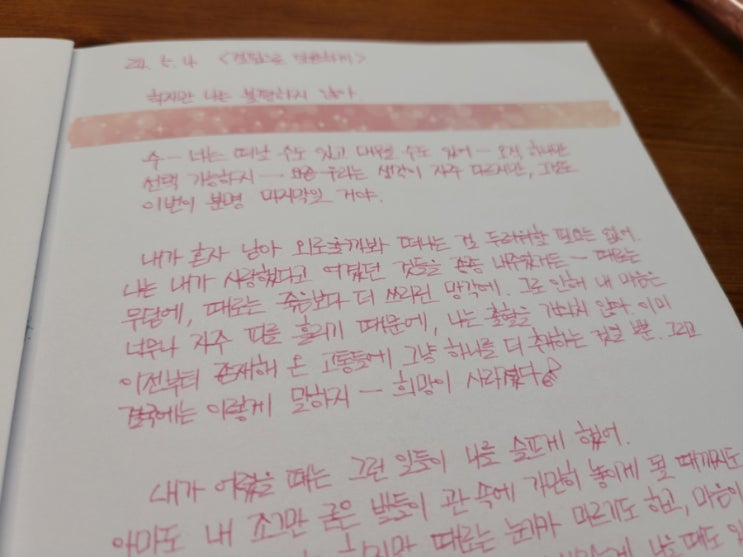 24. 5. 4 <결핍으로 영원하기>
하지만 나는 불편하지 않아
수— 너는 떠날 수도 있고 머무를 수도 있어— 오직 하나만
선택 가능하지— 우리라는 생각이 자주 다르지만, 그럼도
이번이 분명 마지막일 거야.
내가 혼자 남아 외로울까봐 떠나는 걸 두려워할 필요는 없어.
나는 내가 사랑했다고 여겼던 것들을 종종 내주었거든— 때로는
무덤에, 때로는 죽음보다 더 쓰라린 망각에. 그로 인해 내 마음은
너무나 자주 피를 흘리기 때문에, 나는 출혈을 개의치 않아. 이미
이전부터 존재해 온 고통들에 그냥 하나를 더 추가하는 것일 뿐. 그리고
결국에는 이렇게 말하지— 희망이 사라졌다
내가 어렸을 때는 그런 일들이 나를 슬프게 했어.
아마도 내 조그만 굽은 발들이 관 속에 가만히 놓이게 될 때까지도
하지만 때로는 눈가가 마르기도 하고, 마음이
나는 때도 있